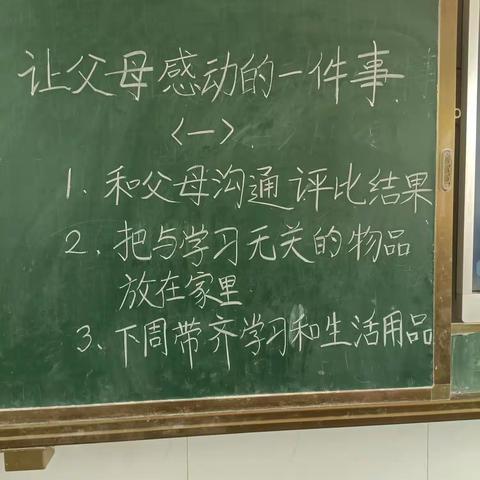 让父母感动的一件事
<一>
1. 和父母沟通评比结果
2. 把与学习无关的物品
放在家里
3. 下周带齐学习和生活用品